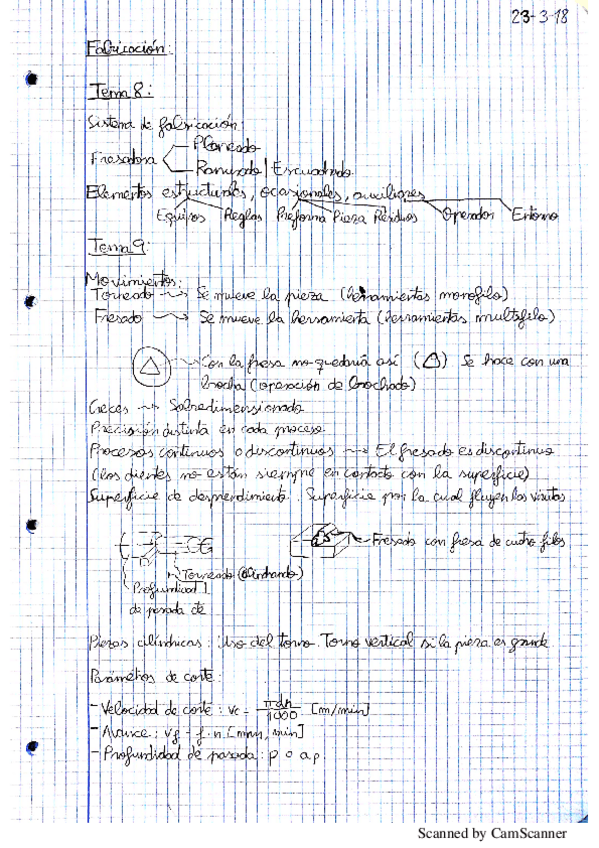 23-3-18
Fabricación:
Tema 8:
Sistema de fabricación:
Fresadora
Planeado
Ranurado | Escuadrado
Elementos estructurales, ocasionales, auxiliares
Equipos Reglas Preforma Pieza Residuos Operador Entorno
Tema 9:
Movimientos:
Torneado → Se mueve la pieza (herramientas monofilo)
Fresado → Se mueve la herramienta (herramientas multifilo)
Con la fresa no quedaría así ( ) Se hace con una
brocha (operación de brochado)
Creces → Sobredimensionado
Precisión distinta en cada proceso
Procesos continuos o discontinuos → El fresado es discontinuo
(los dientes no están siempre en contacto con la superficie)
Superficie de desprendimiento: Superficie por la cual fluyen las virutas
Fresado con fresa de cuatro filos
Torneado (cilindrando)
Profundidad
de pasada
Piezas cilíndricas: Uso del torno. Torno vertical si la pieza es grande
Parámetros de corte:
- Velocidad de corte: vc = πdn/1000 [m/min]
- Avance: vf = f·n [mm/min]
- Profundidad de pasada: p o ap.
Scanned by CamScanner